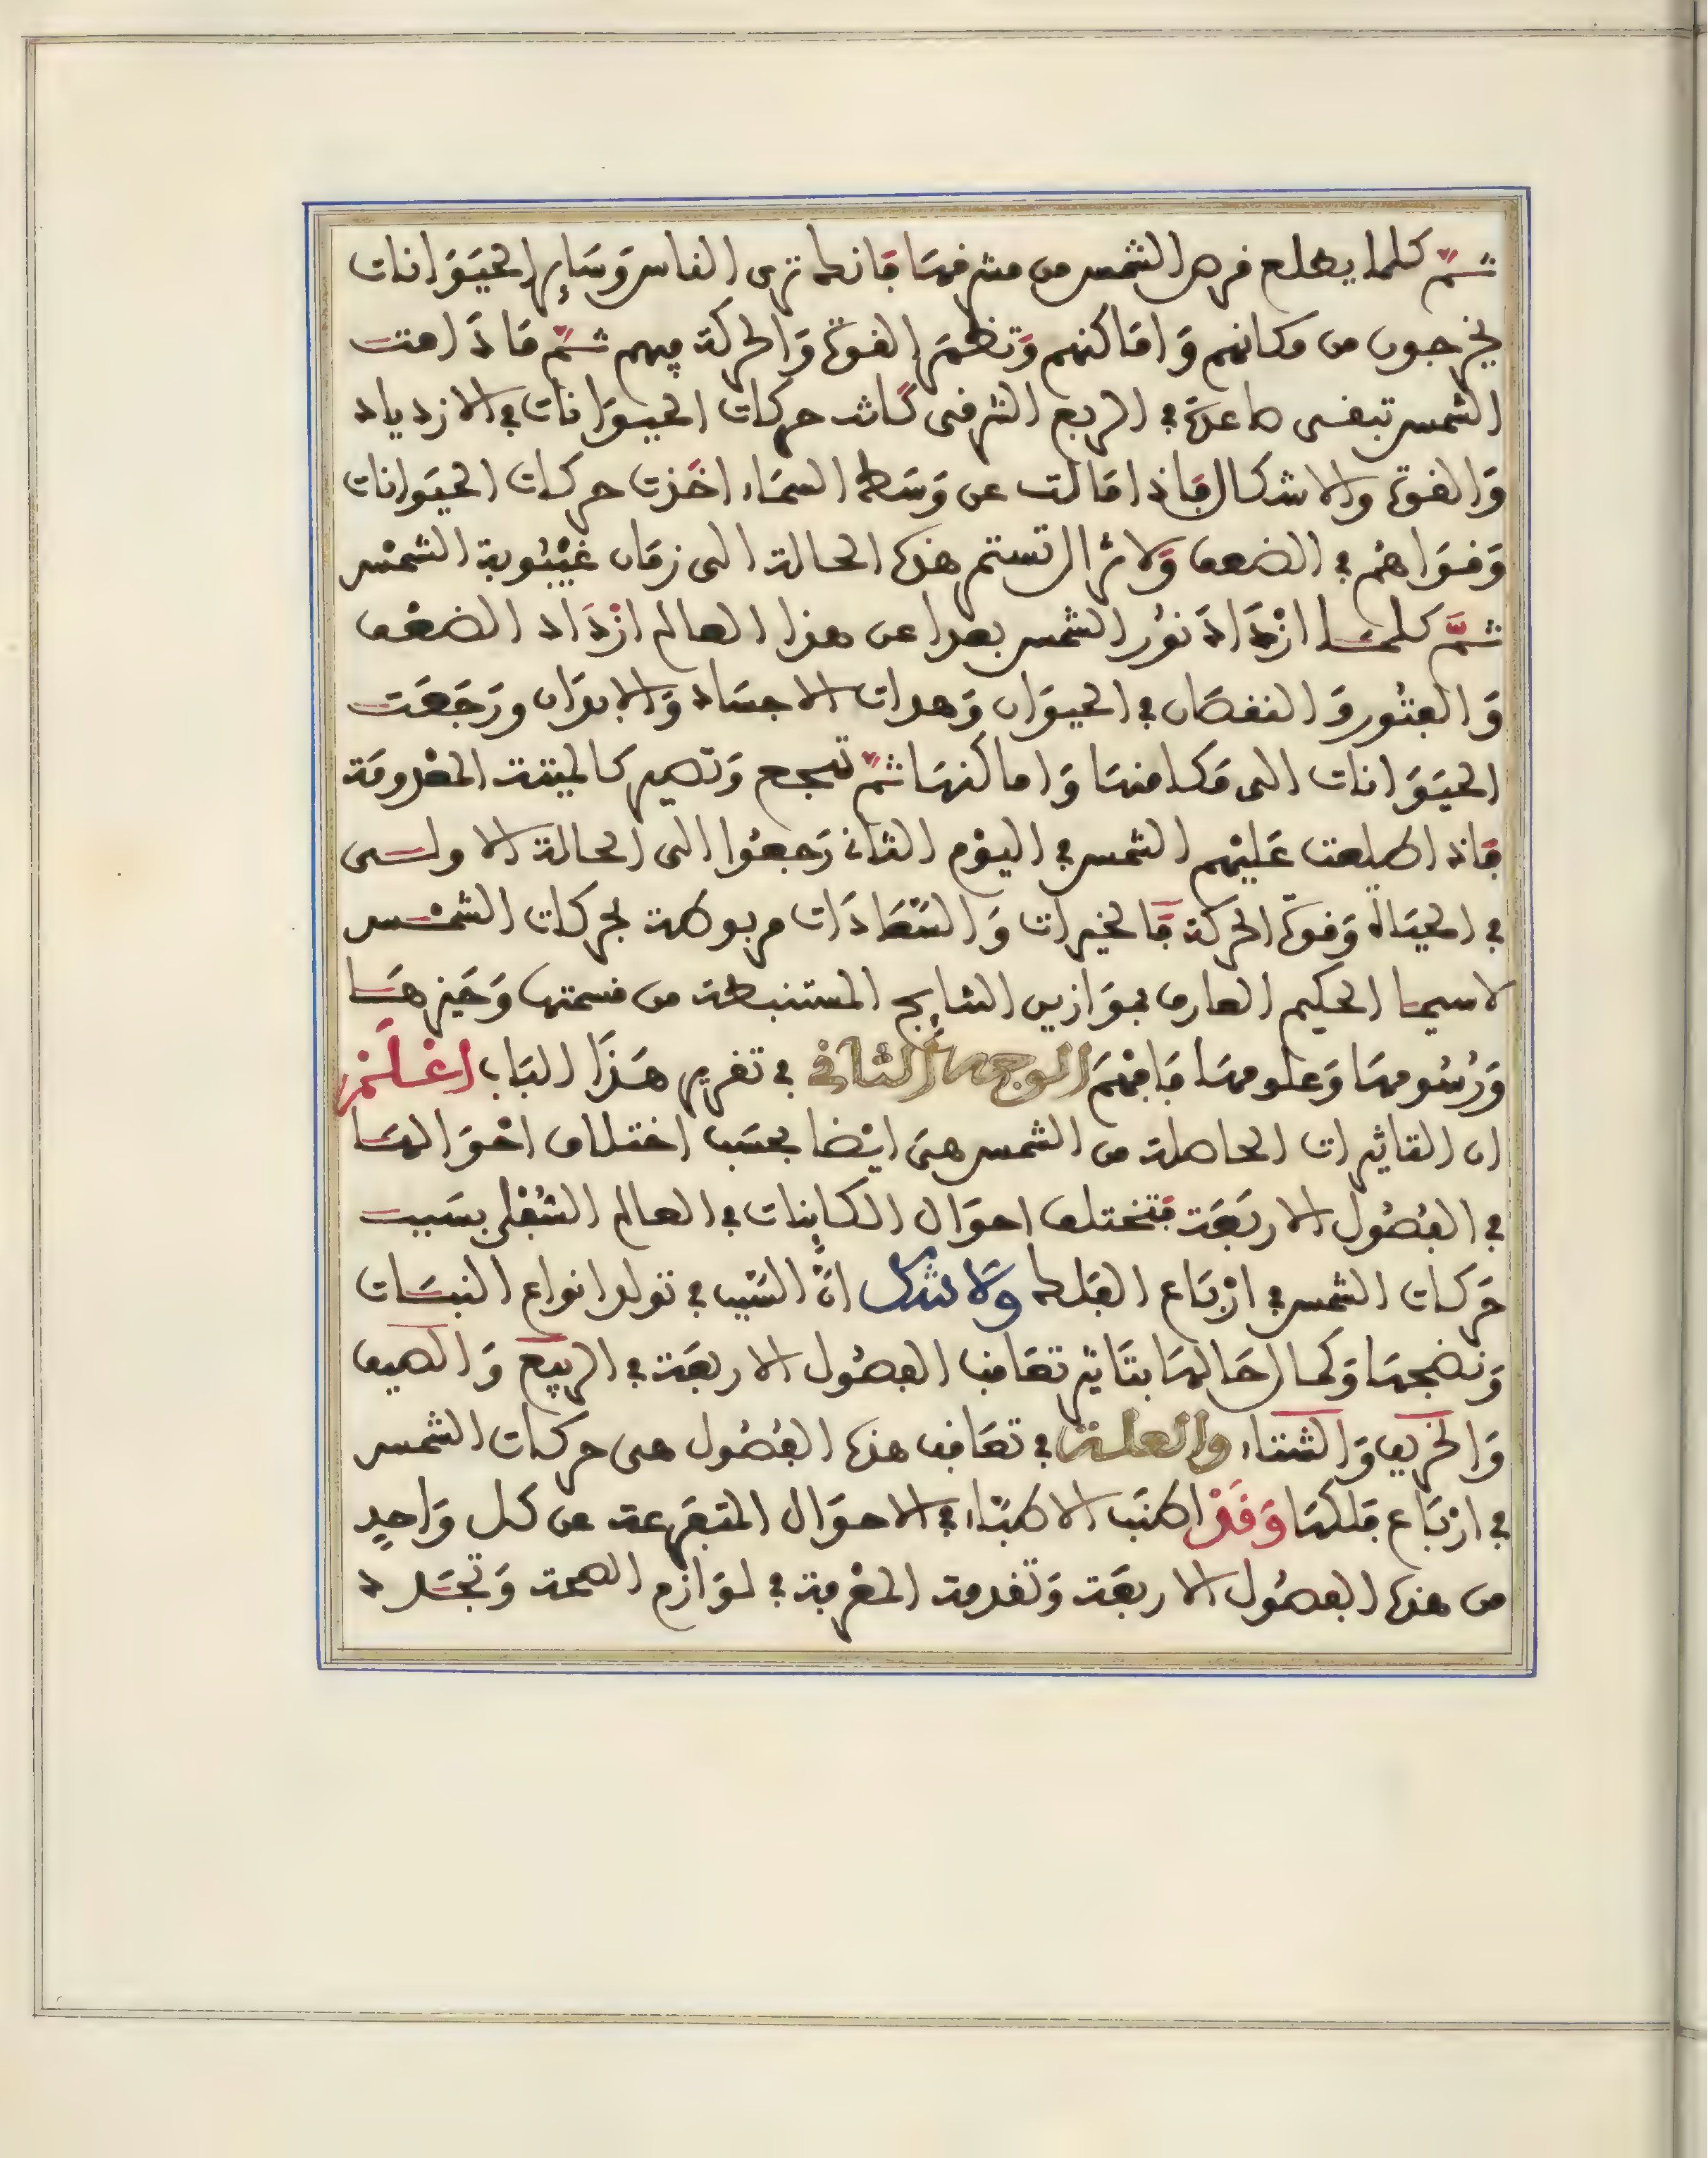 ثم كلما يطلع قرص الشمس من مشرقها فانك ترى الناس وسائر الحيوانات
يخرجون من مكانهم واماكنهم وتظهر القوة والحركة فيهم ثم ما دامت
الشمس تبقى صاعدة في الربع الشرقي كانت حركات الحيوانات في الازدياد
والقوة والاشكال فاذا مالت عن وسط السماء اخذت حركات الحيوانات
وقواهم في الضعف ولا تزال تستمر هذه الحالة الى زمان غيبوبة الشمس
ثم كلما ازداد نور الشمس بعدا عن هذا العالم ازداد الضعف
والفتور والنقصان في الحيوان وهدات الاجساد والابدان ورجعت
الحيوانات الى مكامنها واماكنها ثم تهجع وتصير كالميتة المعدومة
فاذا طلعت عليهم الشمس في اليوم الثاني رجعوا الى الحالة الاولى
في الحياة وقوة الحركة فالخيرات والسعادات مربوطة بحركات الشمس
لاسيما الحكيم العارف بموازين النتايج المستنبطة من قسمتها وحيزها
ورسومها وعلومها فافهم الوجه الثاني في تقرير هذا الباب اعلم
ان التاثيرات الحاصلة من الشمس هي ايضا بحسب اختلاف احوالها
في الفصول الاربعة فتختلف احوال الكاينات في العالم السفلي بسبب
حركات الشمس في ارباع الفلك ولا شك ان السبب في تولد انواع النبات
ونضجها وكمال حالها بتاثير تعاقب الفصول الاربعة في الربيع والصيف
والخريف والشتاء والعلة في تعاقب هذه الفصول هي حركات الشمس
في ارباع فلكها وقد اكتب الاطباء في الاحوال المتفرعة عن كل واحد
من هذه الفصول الاربعة وتقدمة المعرفة في لوازم الصحة وتجدد